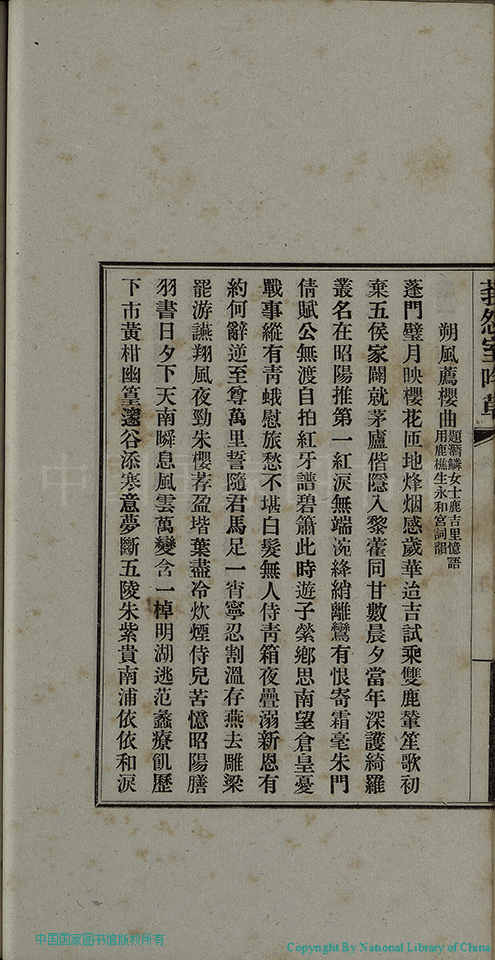 朔風薦櫻曲
題潛鱗女士鹿吉里憶語
用鹿樵生永和宮詞韻
蓬門璧月映櫻花匝地烽烟感歲華迨吉試乘雙鹿輦笙歌初
棄五侯家闢就茅廬偕隱入黎藿同甘數晨夕當年深護綺羅
叢名在昭陽推第一紅淚無端涴絳綃離鸞有恨寄霜毫朱門
倩賦公無渡自拍紅牙譜碧簫此時遊子縈鄉思南望倉皇憂
戰事縱有靑蛾慰旅愁不堪白髮無人侍靑箱夜疊溺新恩有
約何辭逆至尊萬里誓隨君馬足一宵寧忍割溫存燕去雕梁
罷游讌翔風夜勁朱櫻荐盈堦葉盡冷炊煙侍兒苦憶昭陽膳
羽書日夕下天南瞬息風雲萬變含一棹明湖逃范蠡療飢歷
下市黃柑幽篁邃谷添寒意夢斷五陵朱紫貴南浦依依和淚
中国国家图书馆版权所有
Copyright By National Library of China